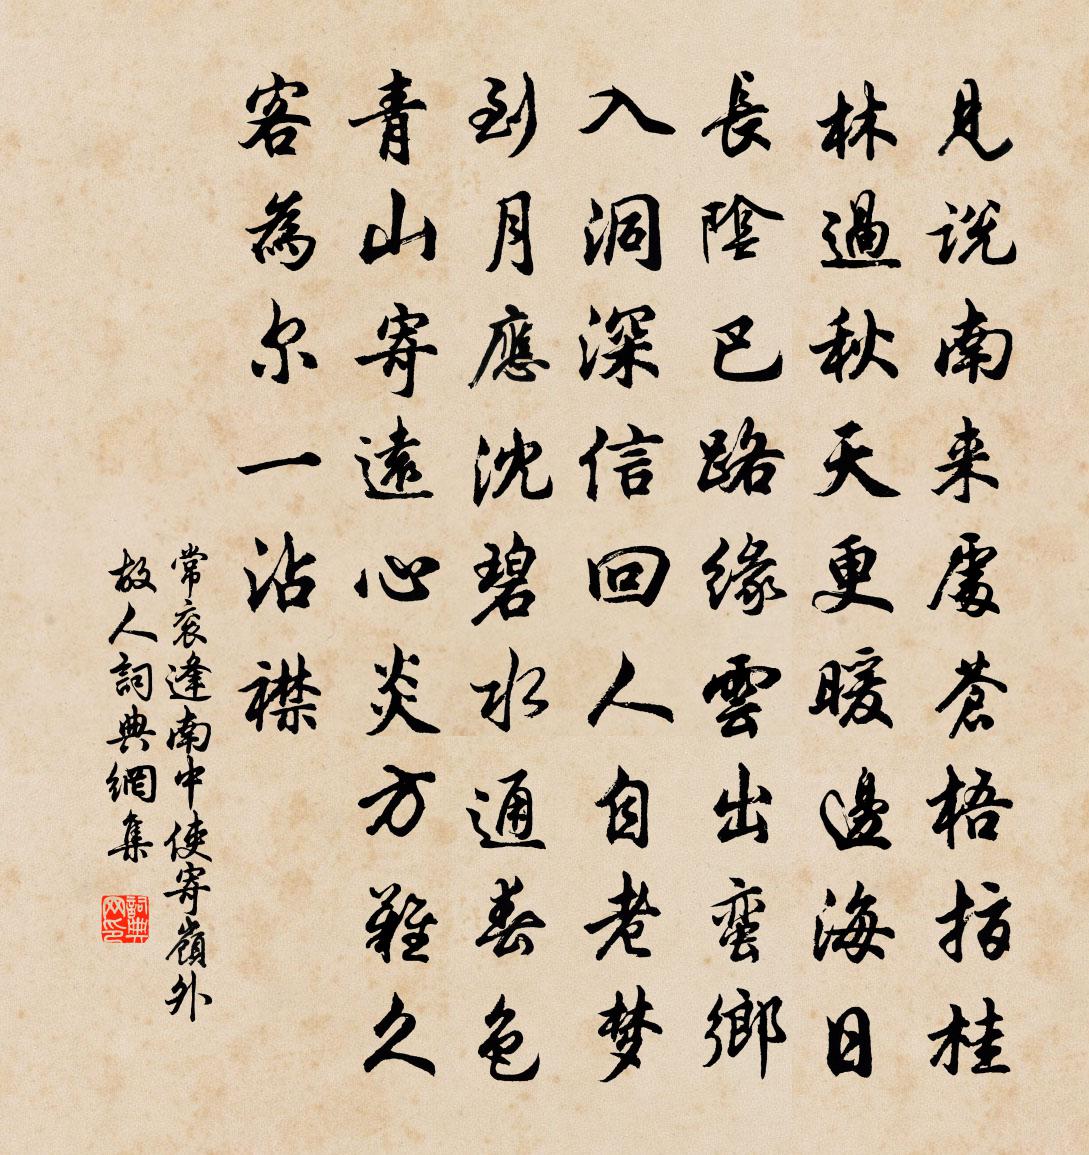 見说南来處蒼梧指桂
林過秋天更暖邊海日
長陰巴路緣雲出蛮鄉
入洞深信回人自老梦
到月應沈碧水通春色
青山寄遠心炎方難久
客為尔一沾襟
常衮逢南中使寄嶺外
故人詞典網集
詞典网印